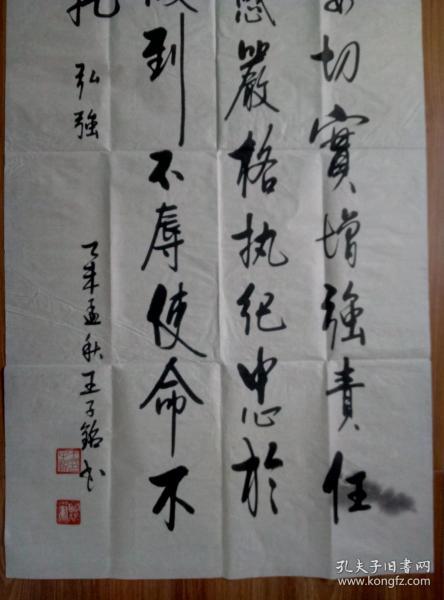 切實增強責任
感嚴格执纪忠於
到不辱使命不
托 弘強
乙未孟秋王子銘书
孔夫子旧书网
www.kongfz.com